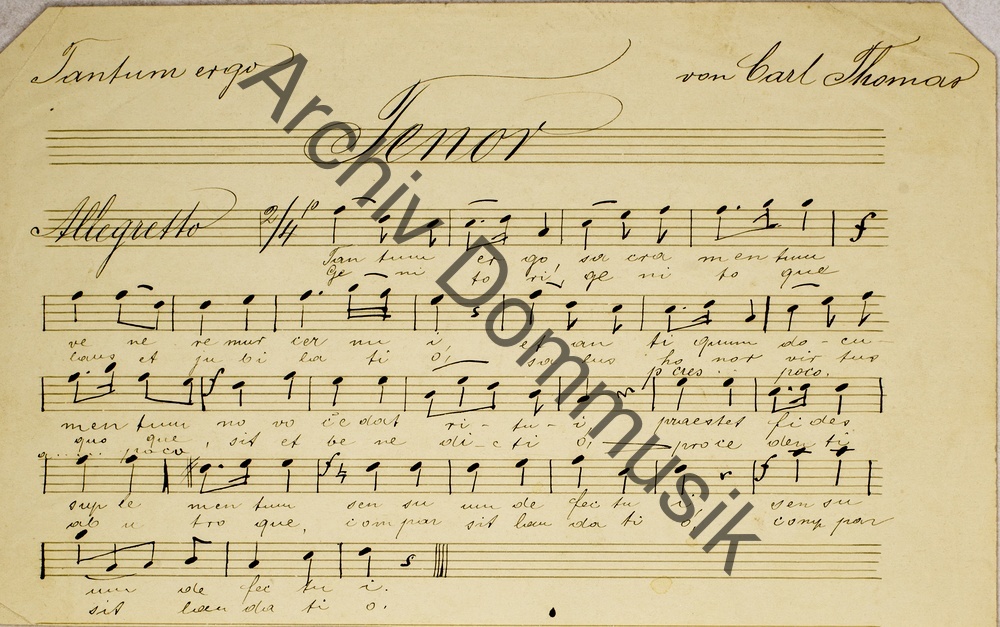 Tantum ergo von Carl Thomas
Tenor
Allegretto 2/4 p
Tan tum er go, sa cra men tum
Ge ni to ri, ge ni to que
f
ve ne re mur cer nu i, et an ti quum do - cu -
laus et ju bi la ti o, sa lus ho nor vir tus
p cres... poco.
men tum no vo cedat ri - tu - i praestet fi des
quo que, sit et be ne di - c ti o, proce den ti
poco
sup le men tum sen su um de fec tu i, sen su
ab u tro que, compar sit lau da ti o, comp par
um de fec tu i.
sit lau da ti o.
Archiv Dommusik